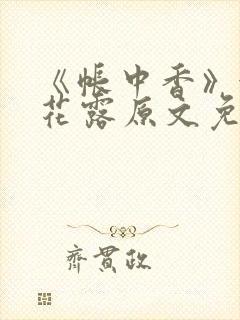 《帐中香》
花露原文免
齐贯政